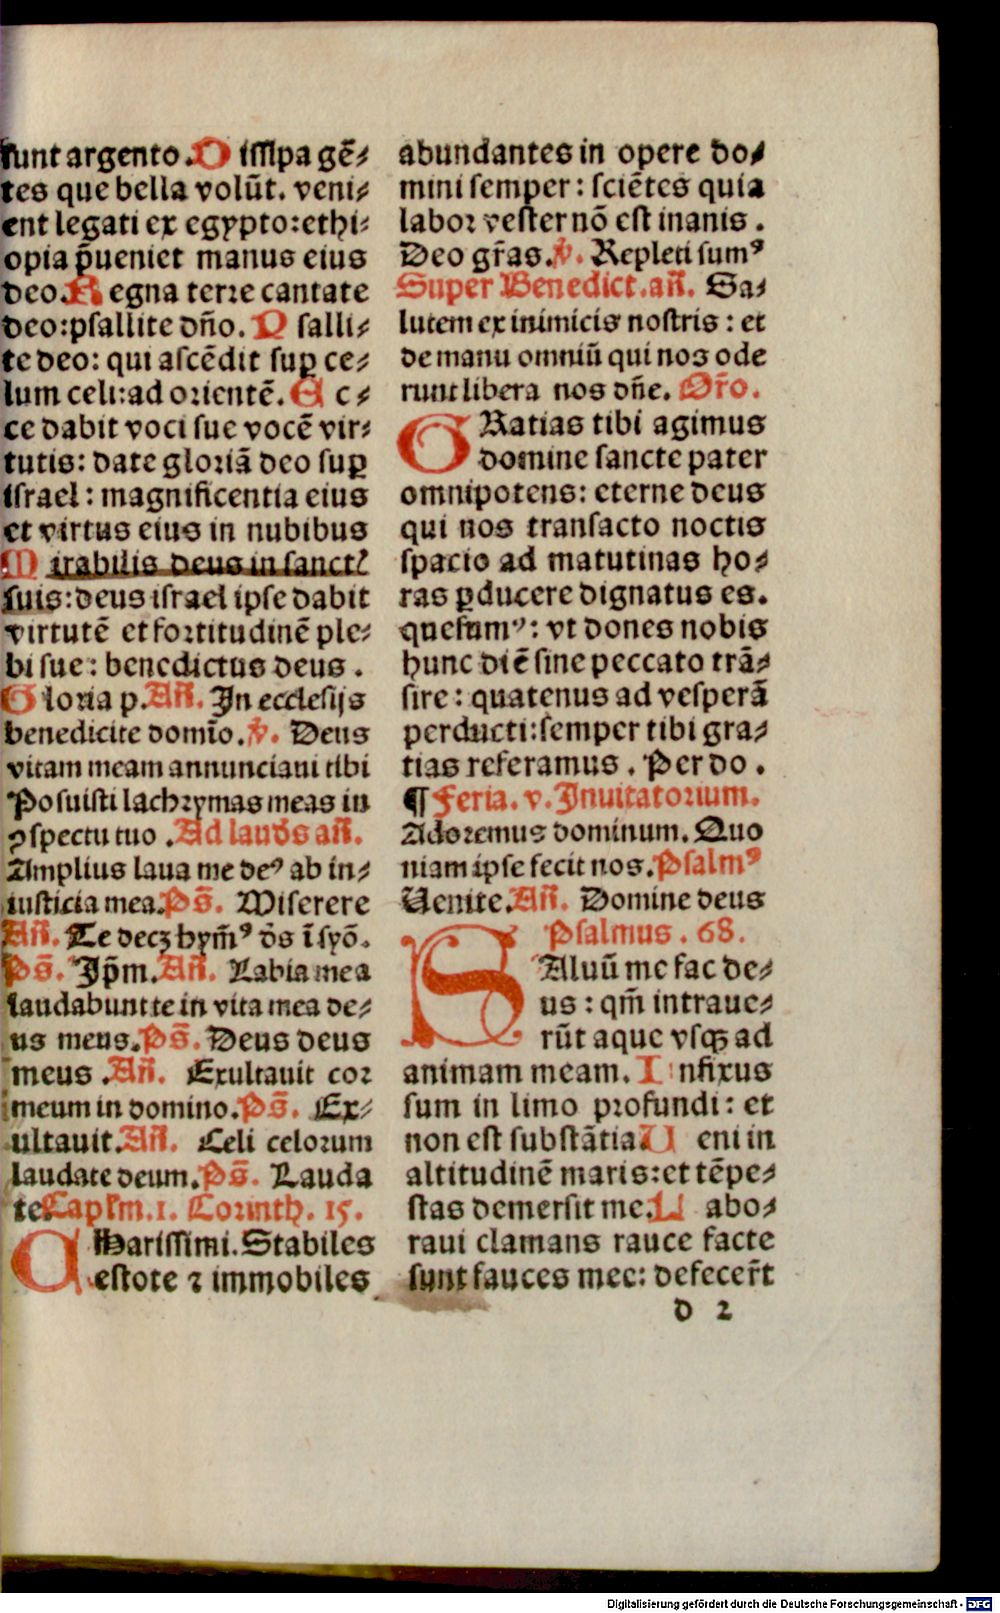 sunt argento. Dissipa gē⸗
tes que bella volūt. veni⸗
ent legati ex egypto: ethi⸗
opia p̄ueniet manus eius
deo. Regna terre cantate
deo: psallite dn̄o. Psalli⸗
te deo: qui ascēdit suꝑ ce⸗
lum celi: ad orientē. Ec⸗
ce dabit voci sue vocē vir⸗
tutis: date gloriā deo suꝑ
israel: magnificentia eius
et virtus eius in nubibus
Mirabilis deus in sanctꝭ
suis: deus israel ipse dabit
virtutē et fortitudinē ple⸗
bi sue: benedictus deus.
Gloria p. An̄. In ecclesijs
benedicite domīo. ℣. Deus
vitam meam annunciaui tibi
Posuisti lachrymas meas in
ꝯspectu tuo. Ad laud̓s an̄.
Amplius laua me deꝰ ab in⸗
iusticia mea. Ps̄. Miserere
An̄. Te decꝫ hym̄ꝰ d̓s ī syō.
Ps̄. Ip̄m. An̄. Labia mea
laudabunt te in vita mea de⸗
us meus. Ps̄. Deus deus
meus. An̄. Exultauit cor
meum in domino. Ps̄. Ex⸗
ultauit. An̄. Celi celorum
laudate deum. Ps̄. Lauda
te. Capl̄m. 1. Corinth. 15.
CHarissimi. Stabiles
estote ⁊ immobiles
abundantes in opere do⸗
mini semper: sciētes quia
labor vester nō est inanis.
Deo gr̄as. ℣. Repleti sumꝰ
Super Benedict. an̄. Sa⸗
lutem ex inimicis nostris: et
de manu omniū qui nos ode
runt libera nos dn̄e. Or̄o.
GRatias tibi agimus
domine sancte pater
omnipotens: eterne deus
qui nos transacto noctis
spacio ad matutinas ho⸗
ras ꝑducere dignatus es.
quesumꝰ: vt dones nobis
hunc diē sine peccato trā⸗
sire: quatenus ad vesperā
perducti: semper tibi gra⸗
tias referamus. Per do.
¶ Feria. v. Inuitatorium.
Adoremus dominum. Quo
niam ipse fecit nos. Psalmꝰ
Uenite. An̄. Domine deus
Psalmus. 68.
SAluū me fac de⸗
us: qm̄ intraue⸗
rūt aque vsqꝫ ad
animam meam. Infixus
sum in limo profundi: et
non est substātia. Ueni in
altitudinē maris: et tēpe⸗
stas demersit me. Labo⸗
raui clamans rauce facte
sunt fauces mee: defecer̄t
d 2
Digitalisierung gefördert durch die Deutsche Forschungsgemeinschaft - DFG